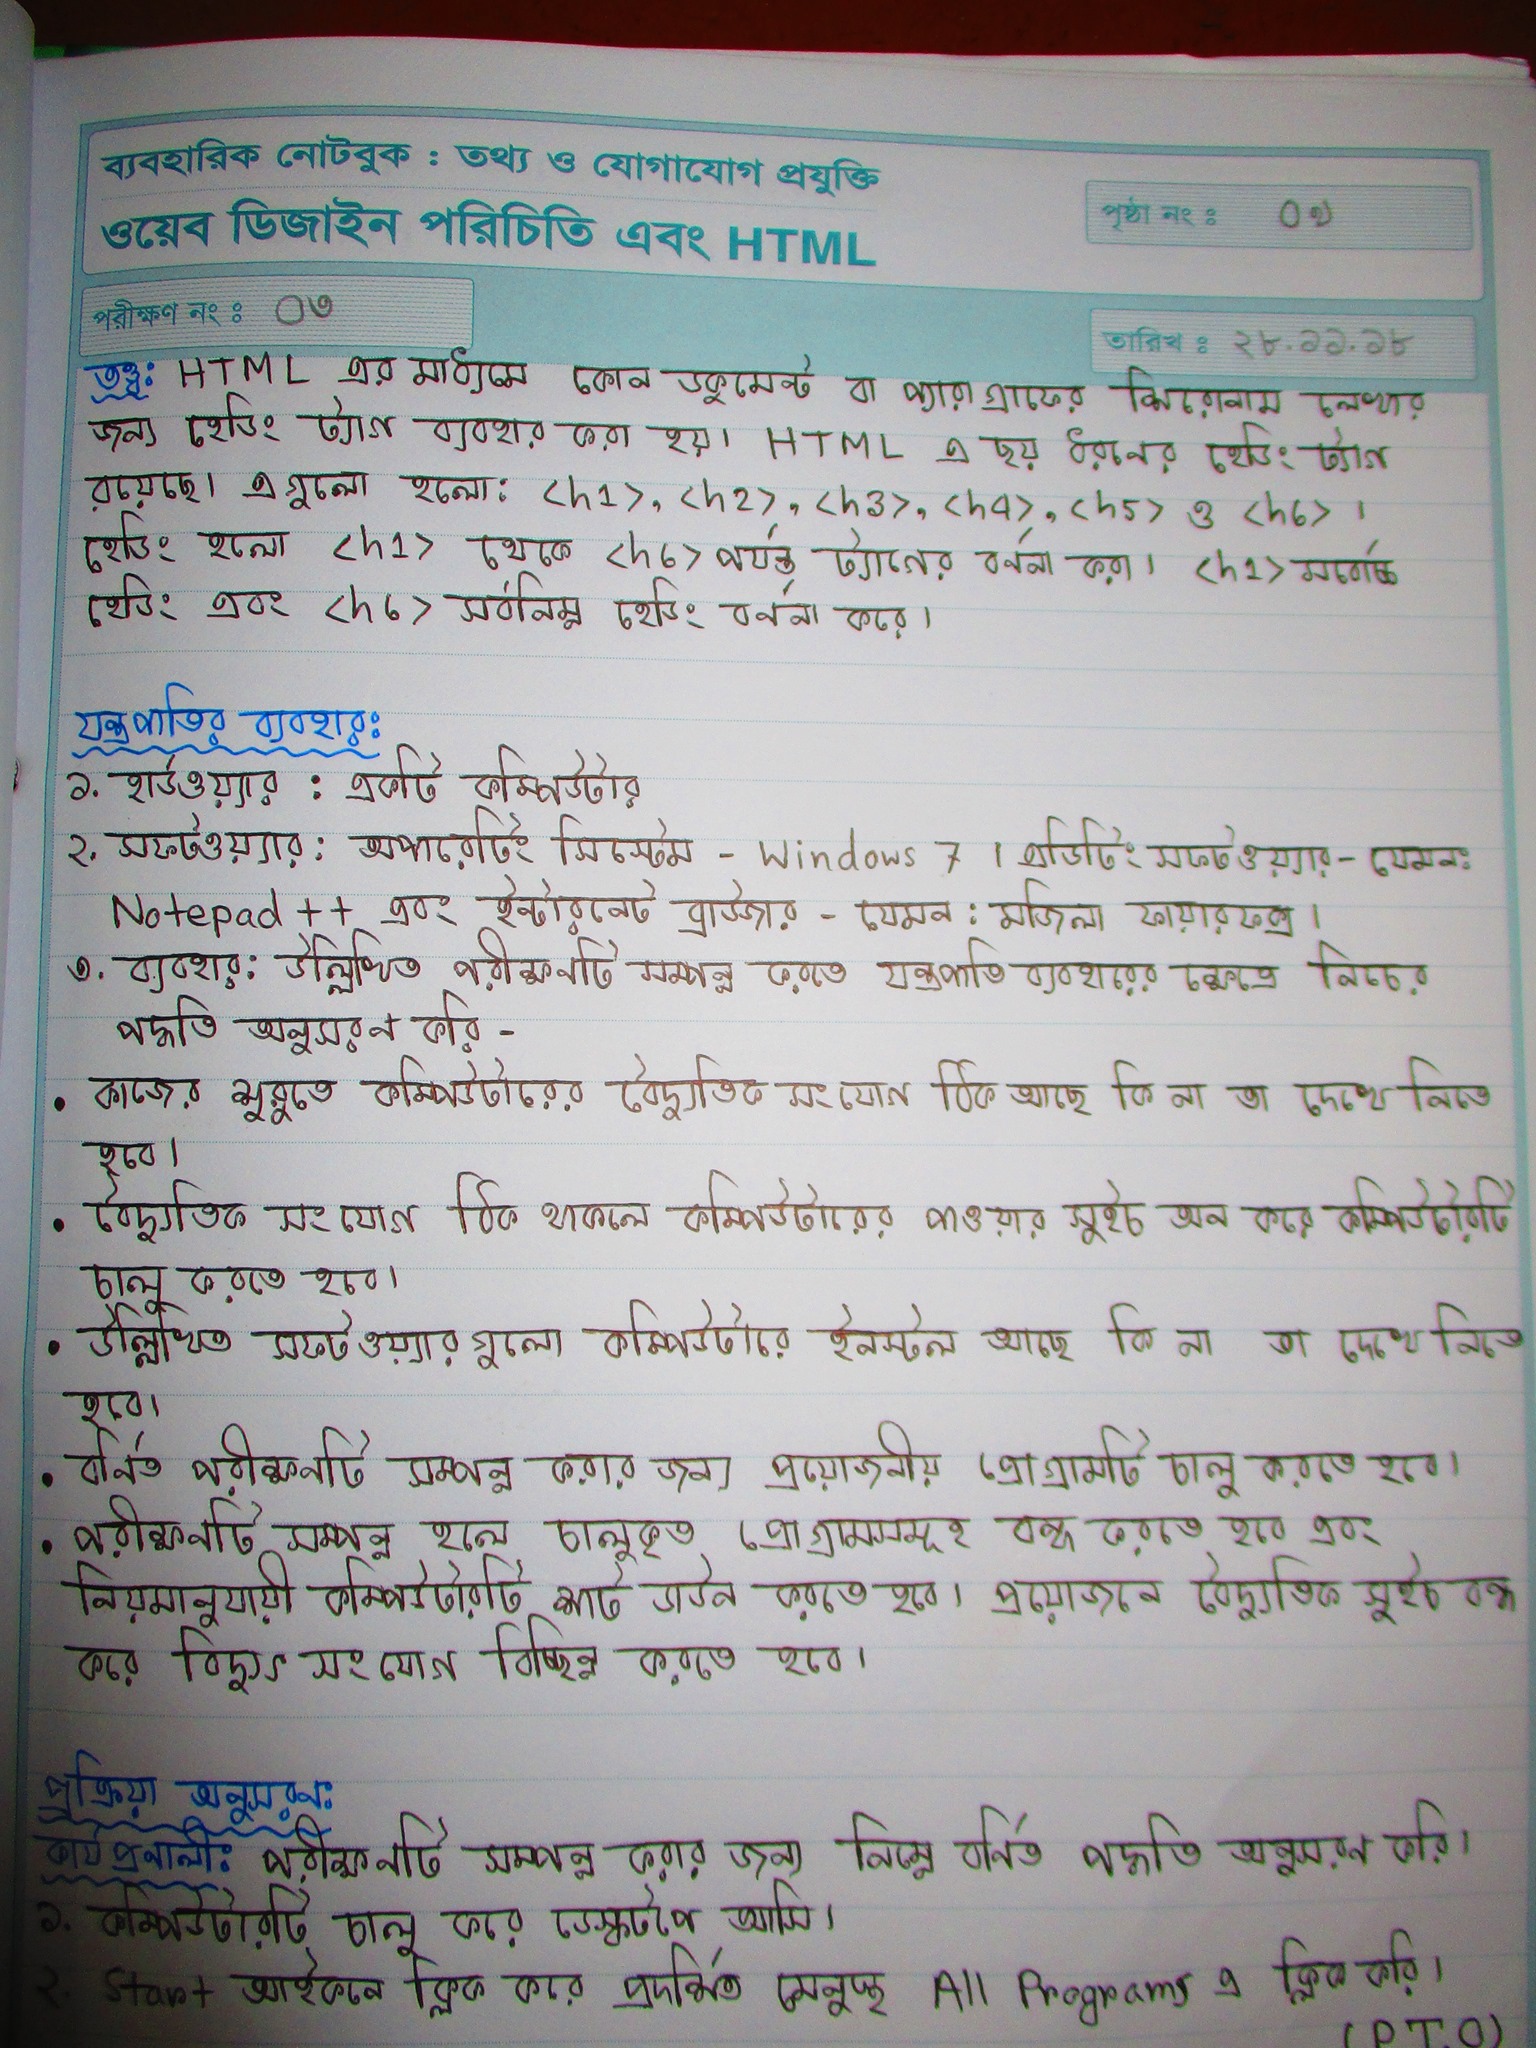 ব্যবহারিক নোটবুক : তথ্য ও যোগাযোগ প্রযুক্তি
ওয়েব ডিজাইন পরিচিতি এবং HTML
পৃষ্ঠা নং :
পরীক্ষণ নং : ০৩
তারিখ : ২৮.১১.১৮
তত্ত্ব: HTML এর মাধ্যমে কোন ডকুমেন্ট বা প্যারাগ্রাফের শিরোনাম লেখার
জন্য হেডিং ট্যাগ ব্যবহার করা হয়। HTML এ ছয় ধরনের হেডিং ট্যাগ
রয়েছে। এগুলো হলো: <h1>, <h2>, <h3>, <h4>, <h5> ও <h6> ।
হেডিং হলো <h1> থেকে <h6> পর্যন্ত ট্যাগের বর্ননা করা। <h1> সর্বোচ্চ
হেডিং এবং <h6> সর্বনিম্ন হেডিং বর্ননা করে।
যন্ত্রপাতির ব্যবহার:
১. হার্ডওয়্যার : একটি কম্পিউটার
২. সফটওয়্যার: অপারেটিং সিস্টেম - Windows 7 । এডিটিং সফটওয়্যার- যেমন:
Notepad ++ এবং ইন্টারনেট ব্রাউজার - যেমন : মজিলা ফায়ারফক্স।
৩. ব্যবহার: উল্লিখিত পরীক্ষনটি সম্পন্ন করতে যন্ত্রপাতি ব্যবহারের ক্ষেত্রে নিচের
পদ্ধতি অনুসরণ করি -
• কাজের শুরুতে কম্পিউটারের বৈদ্যুতিক সংযোগ ঠিক আছে কি না তা দেখে নিতে
হবে।
• বৈদ্যুতিক সংযোগ ঠিক থাকলে কম্পিউটারের পাওয়ার সুইচ অন করে কম্পিউটারটি
চালু করতে হবে।
• উল্লিখিত সফটওয়্যারগুলো কম্পিউটারে ইনস্টল আছে কি না তা দেখে নিতে
হবে।
• বর্নিত পরীক্ষনটি সম্পন্ন করার জন্য প্রয়োজনীয় প্রোগ্রামটি চালু করতে হবে।
• পরীক্ষনটি সম্পন্ন হলে চালুকৃত প্রোগ্রামসমূহ বন্ধ করতে হবে এবং
নিয়মানুযায়ী কম্পিউটারটি শাট ডাউন করতে হবে। প্রয়োজনে বৈদ্যুতিক সুইচ বন্ধ
করে বিদ্যুৎ সংযোগ বিচ্ছিন্ন করতে হবে।
প্রক্রিয়া অনুসরন:
কার্যপ্রনালী: পরীক্ষনটি সম্পন্ন করার জন্য নিম্নে বর্নিত পদ্ধতি অনুসরণ করি।
১. কম্পিউটারটি চালু করে ডেস্কটপে আসি।
২. Start আইকনে ক্লিক করে প্রদর্শিত মেনুস্থ All Programs এ ক্লিক করি।
(P.T.O)